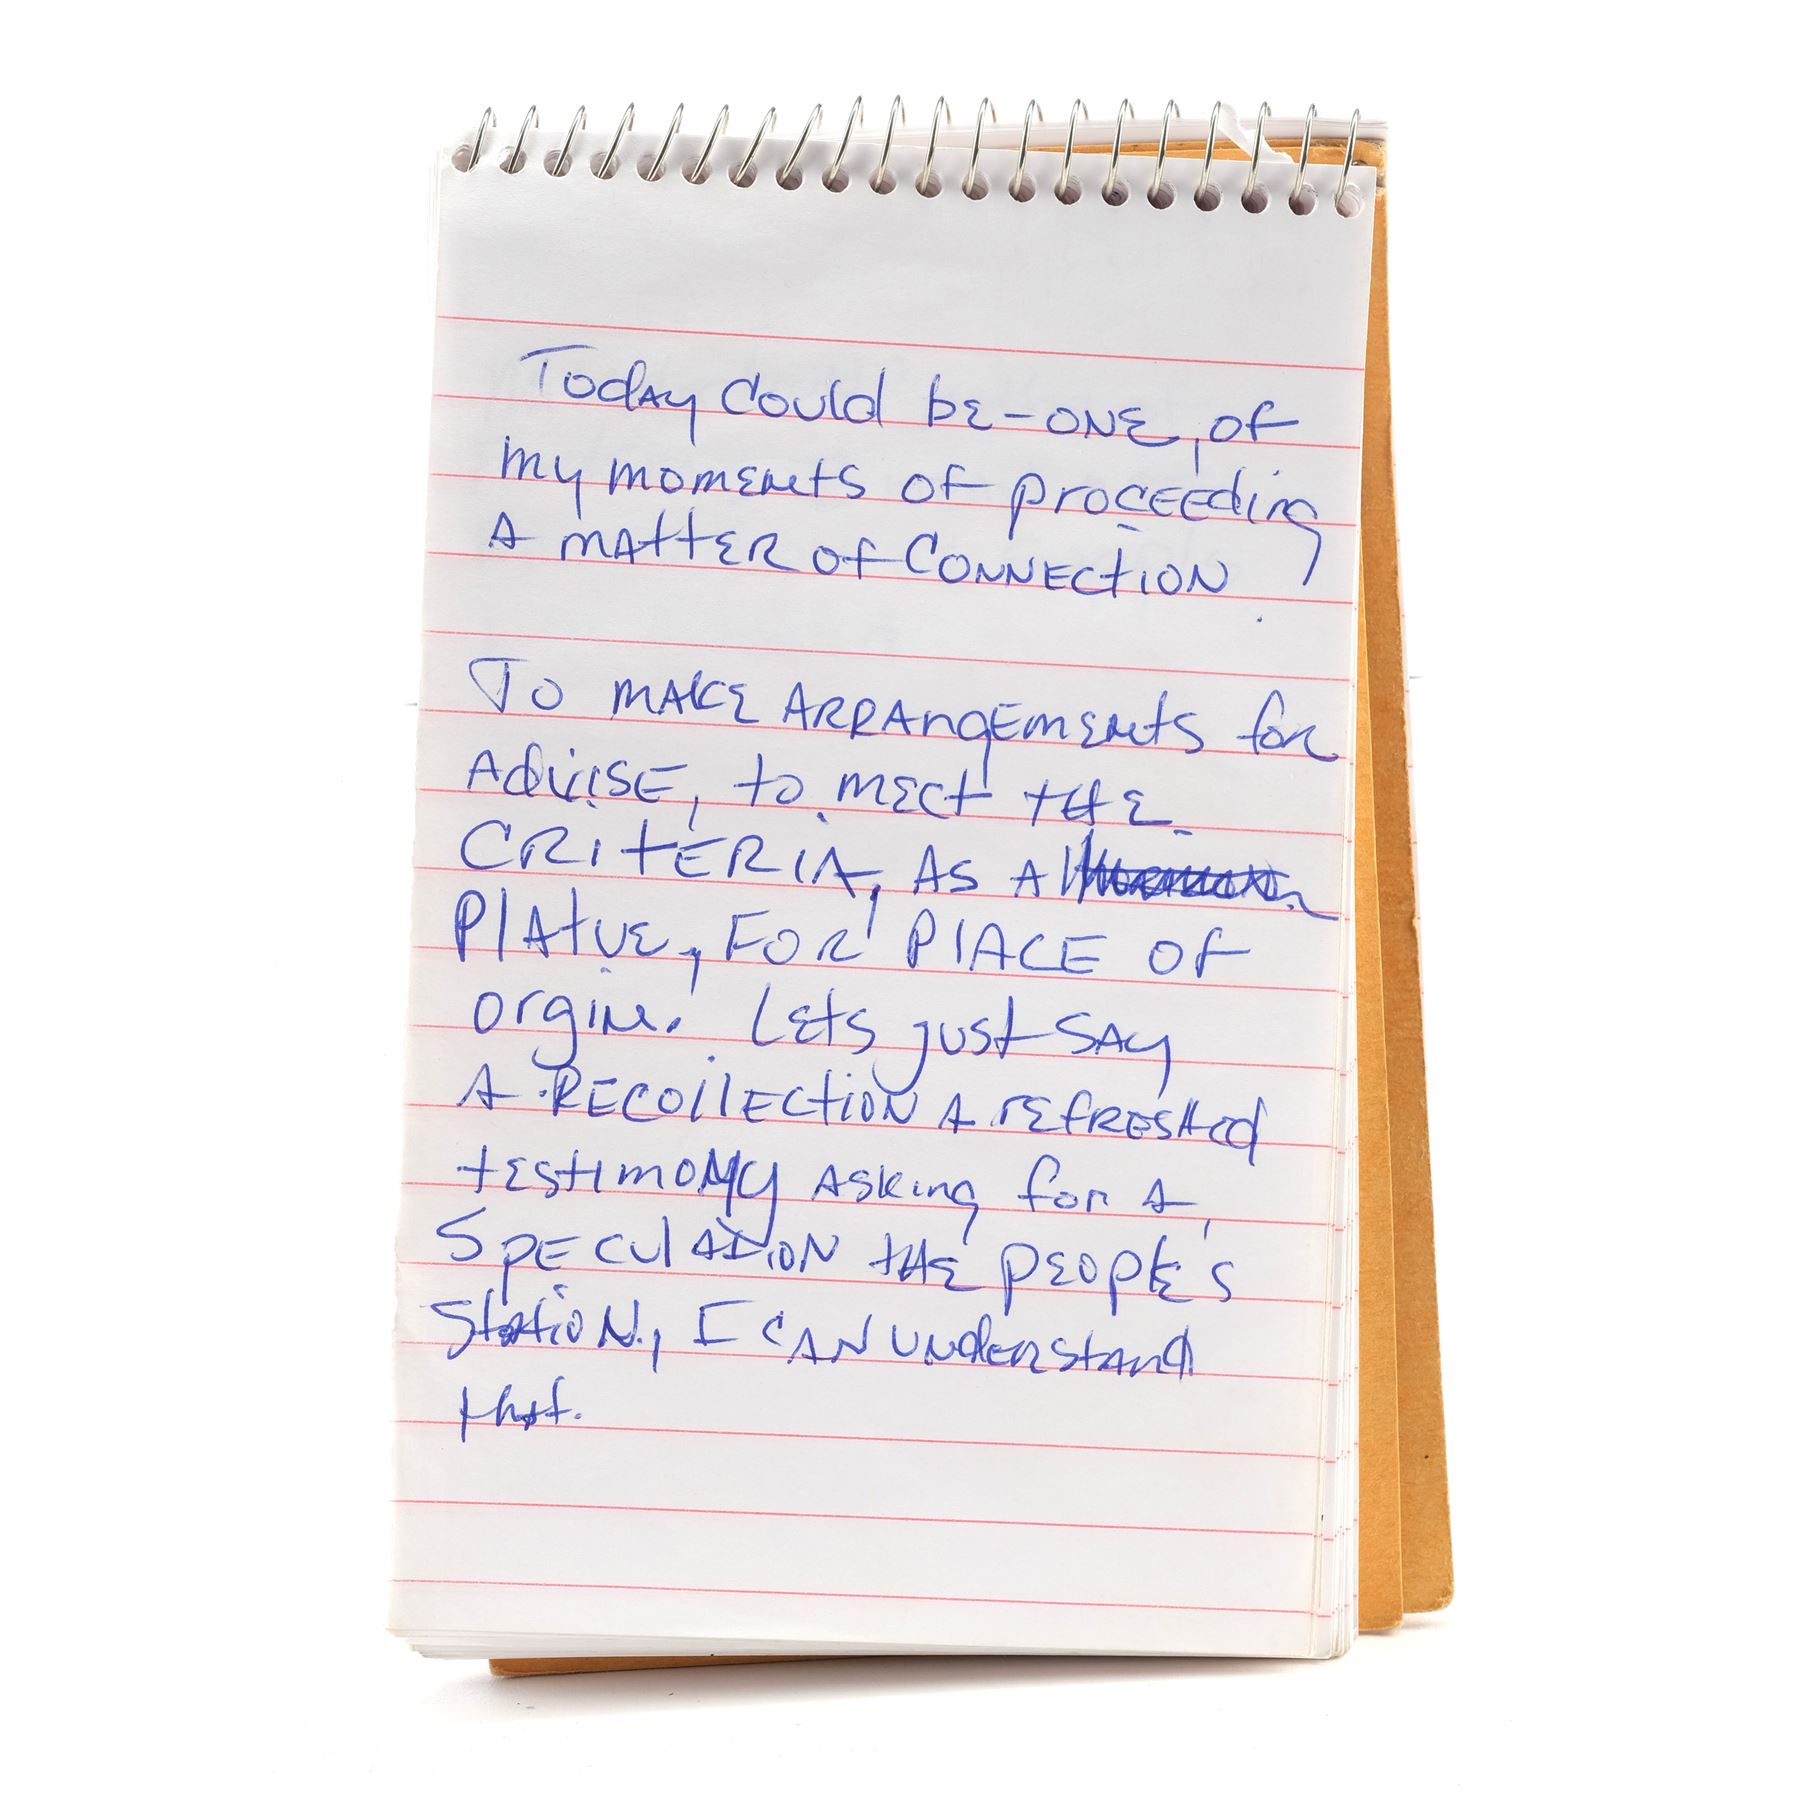 Today could be-one, of
my moments of proceeding
A matter of Connection.
To make Arrangements for
Advise, to meet the
CRITERIA, AS A
Platue, FOR Place of
orgin. Lets just say
A Recollection A refreshed
testimony asking for a
Speculation the people's
Station, I can understand
that.